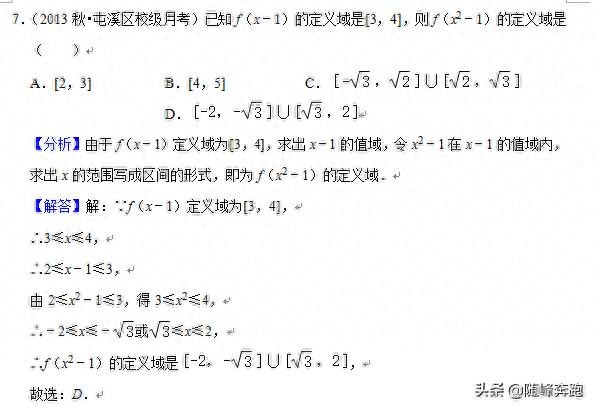 7.(2013秋•屯溪区校级月考)已知f(x-1)的定义域是[3,4],则f(x²-1)的定义域是
( )
A.[2,3] B.[4,5] C.[-√3,√2]∪[√2,√3]
D.[-2,-√3]∪[√3,2]
【分析】由于f(x-1)定义域为[3,4],求出x-1的值域,令x²-1在x-1的值域内,
求出x的范围写成区间的形式,即为f(x²-1)的定义域.
【解答】解:∵f(x-1)定义域为[3,4],
∴3≤x≤4,
∴2≤x-1≤3,
由2≤x²-1≤3,得3≤x²≤4,
∴-2≤x≤-√3或√3≤x≤2,
∴f(x²-1)的定义域是[-2,-√3]∪[√3,2],
故选:D.
头条@随峰奔跑